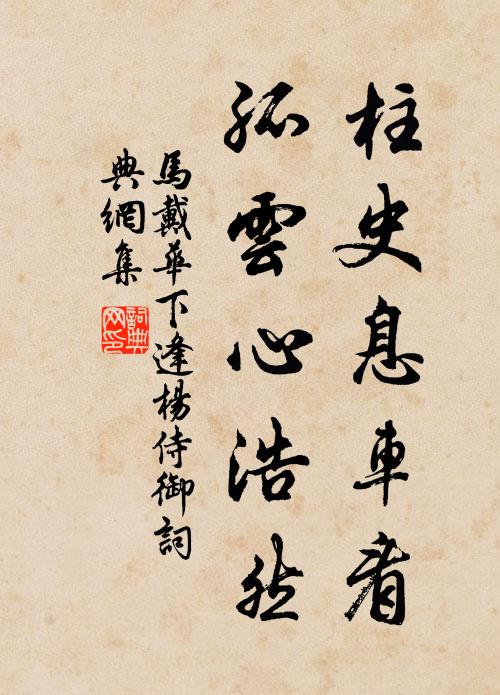 柱史息車看
孤雲心浩然
馬戴華下逢楊侍御詞
典網集
詞典
网印